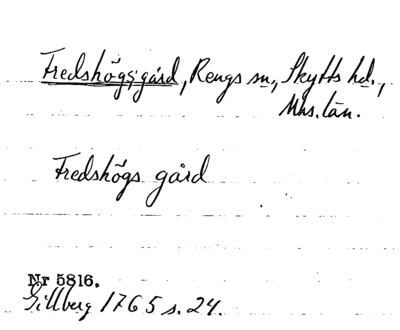 Fredshögs gård, Rengs sn., Skytts hd.,
Mhs. län.
Fredshögs gård
Nr 5816.
Gillberg 1765 s. 24.